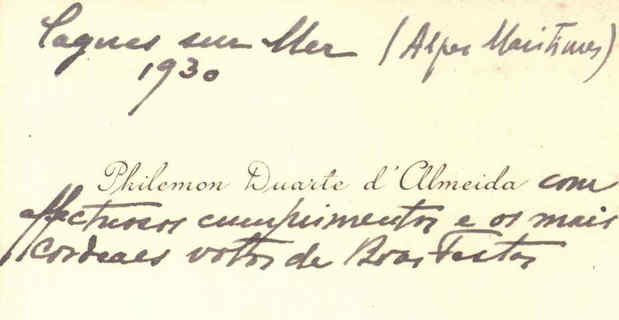 Cagnes sur Mer (Alpes Maritimes)
1930
Philemon Duarte d'Almeida com
affectuosos cumprimentos e os mais
cordeaes votos de Boas Festas